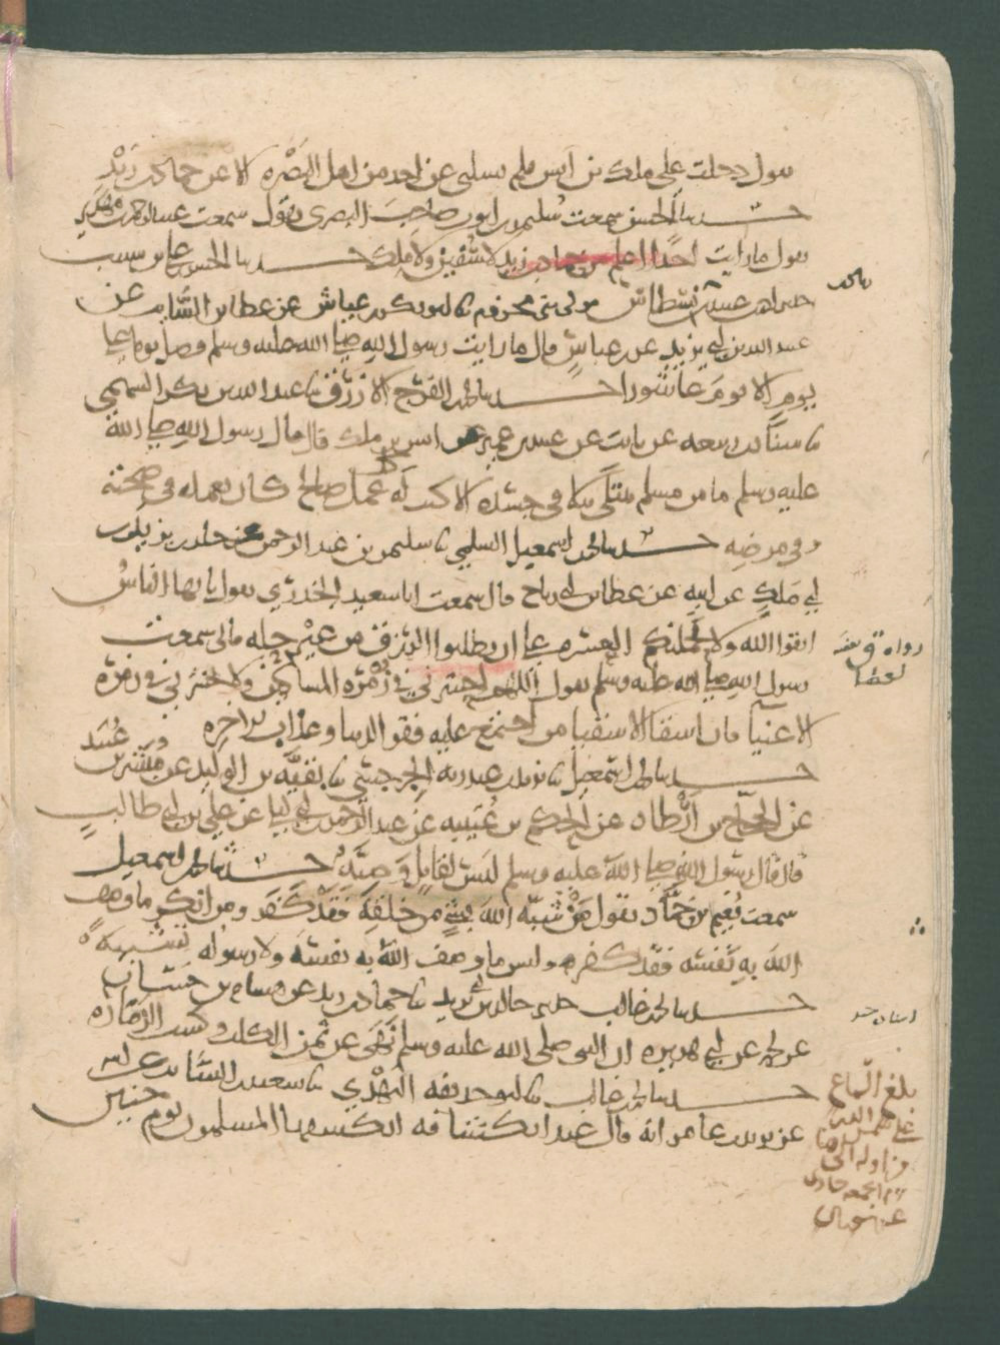 يقول دخلت على ملك بن انس فلم يسلني عن احد من اهل البصرة الا عن حماد بن زيد
حدثنا الحسن سمعت سليمن بن ايوب صاحب البصري يقول سمعت عبد الرحمن بن مهدي
يقول ما رايت احدا اعلم من حماد بن زيد لا سفين ولا ملك حدثنا الحسن بن علي بن شبيب
مولى بني مخزوم نا ابو بكر بن عياش عن عطا بن السايب عن
عبيد الله بن ابي يزيد عن بن عباس قال ما رايت رسول الله صلى الله عليه وسلم يوما على
يوم الا يوم عاشورا حدثنا محمد بن الفرج الازرق نا عبد الله بن بكر السهمي
نا سنان بن ربيعه عن ثابت عن عبيد بن عمير عن انس بن ملك قال قال رسول الله صلى الله
عليه وسلم ما من مسلم مبتلى ببلا في جسده الا كتب له عمل صالح كان يعمله في صحته
وفي مرضه حدثنا محمد بن اسمعيل السلمي نا سليمن بن عبد الرحمن عن خلد بن يزيد بن
ابي ملك عن ابيه عن عطا بن ابي رباح قال سمعت ابا سعيد الخدري يقول يا يها الناس
اتقوا الله ولا تحملنكم العسره على ان تطلبوا الرزق من غير حله فاني سمعت
رسول الله صلى الله عليه وسلم يقول اللهم احشرني في زمرة المساكين ولا تحشرني في زمرة
الاغنيا فان اشقا الاشقيا من اجتمع عليه فقر الدنيا وعذاب الاخره
حدثنا محمد بن اسمعيل نا يزيد بن عبد ربه الجرجسي نا بقيه بن الوليد عن مبشر بن عبيد
عن الحجاج بن ارطاه عن الحكم بن عتيبه عن عبد الرحمن بن ابي ليلى عن علي بن ابي طالب
قال قال رسول الله صلى الله عليه وسلم ليس لقاتل وصية حدثنا محمد بن اسمعيل
سمعت نعيم بن حماد يقول من شبه الله بشي من خلقه فقد كفر ومن انكر ما وصف
الله به نفسه فقد كفر وليس ما وصف الله به نفسه ولا رسوله تشبيه
حدثنا محمد بن غالب خالد بن ابي يزيد نا حماد بن زيد عن هشام بن حسان
عن محمد عن ابي هريره ان النبي صلى الله عليه وسلم نهى عن ثمن الكلب وكسب الزماره
حدثنا محمد بن غالب نا ابو حذيفه النهدي نا سعيد بن السايب عن
عن يزيد بن عامر انه قال عند انكشافه انكشفها المسلمون يوم حنين
رواه ق
اسناد جيد
بلغ السماع
علي شمس الدين
من اوله الى هنا